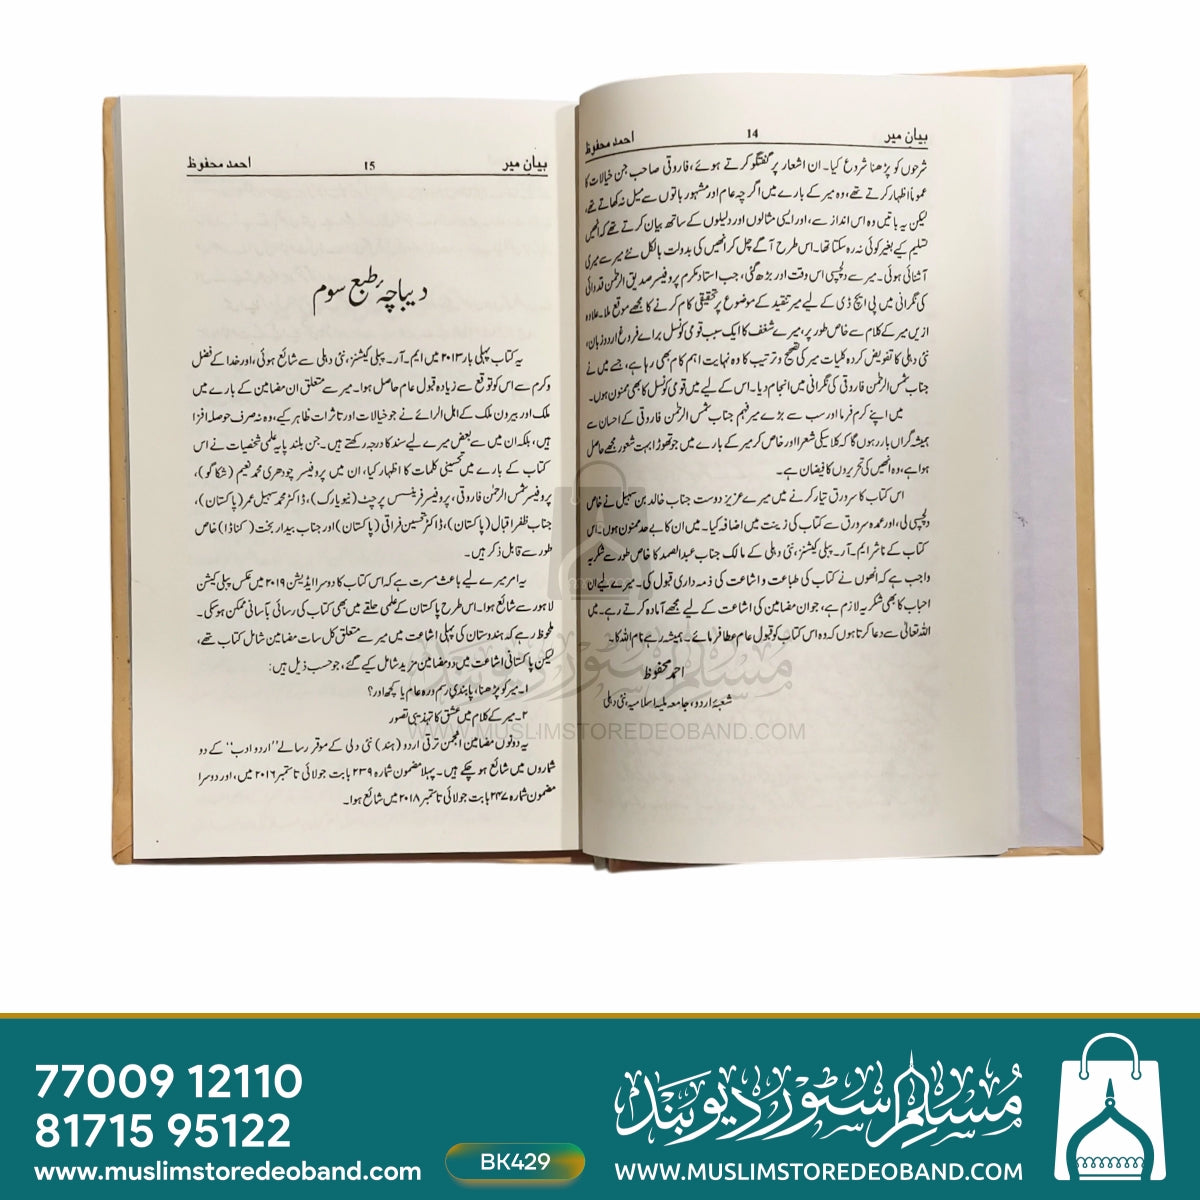 بیان میر 14 احمد محفوظ
شرحوں کو پڑھنا شروع کیا۔ ان اشعار پر گفتگو کرتے ہوئے، فاروقی صاحب جن خیالات کا
عموماً اظہار کرتے تھے، وہ میر کے بارے میں اگرچہ عام اور مشہور باتوں سے میل نہ کھاتے تھے،
لیکن یہ باتیں وہ اس انداز سے، اور ایسی مثالوں اور دلیلوں کے ساتھ بیان کرتے تھے کہ انھیں
تسلیم کیے بغیر کوئی نہ رہ سکتا تھا۔ اس طرح آگے چل کر انھیں کی بدولت بالکل نئے میر سے میری
آشنائی ہوئی۔ میر سے دلچسپی اس وقت اور بڑھ گئی، جب استاد مکرم پروفیسر صدیق الرحمٰن قدوائی
کی نگرانی میں پی ایچ ڈی کے لیے میر تنقید کے موضوع پر تحقیقی کام کرنے کا مجھے موقع ملا۔ علاوہ
ازیں میر کے کلام سے خاص طور پر، میرے شغف کا ایک سبب قومی کونسل برائے فروغ اردو زبان،
نئی دہلی کا تفویض کردہ کلیات میر کی تصحیح و ترتیب کا وہ نہایت اہم کام بھی رہا ہے، جسے میں نے
جناب شمس الرحمٰن فاروقی کی نگرانی میں انجام دیا۔ اس کے لیے میں قومی کونسل کا بھی ممنون ہوں۔
میں اپنے کرم فرما اور سب سے بڑے میر فہم جناب شمس الرحمٰن فاروقی کے احسان سے
ہمیشہ گراں بار رہوں گا کہ کلاسیکی شعرا اور خاص کر میر کے بارے میں جو تھوڑا بہت شعور مجھے حاصل
ہوا ہے، وہ انھیں کی تحریروں کا فیضان ہے۔
اس کتاب کا سرورق تیار کرنے میں میرے عزیز دوست جناب خالد بن سہیل نے خاص
دلچسپی لی، اور عمدہ سرورق سے کتاب کی زینت میں اضافہ کیا۔ میں ان کا بے حد ممنون ہوں۔ اس
کتاب کے ناشر ایم۔ آر۔ پبلی کیشنز، نئی دہلی کے مالک جناب عبدالصمد کا خاص طور سے شکریہ
واجب ہے کہ انھوں نے کتاب کی طباعت و اشاعت کی ذمہ داری قبول کی۔ میرے لیے ان
احباب کا بھی شکریہ لازم ہے، جو ان مضامین کی اشاعت کے لیے مجھے آمادہ کرتے رہے۔ میں
اللہ تعالیٰ سے دعا کرتا ہوں کہ وہ اس کتاب کو قبول عام عطا فرمائے۔ ہمیشہ رہے نام اللہ کا۔
احمد محفوظ
شعبۂ اردو، جامعہ ملیہ اسلامیہ، نئی دہلی
بیان میر 15 احمد محفوظ
دیباچۂ طبع سوم
یہ کتاب پہلی بار ۲۰۱۳ میں ایم۔ آر۔ پبلی کیشنز، نئی دہلی سے شائع ہوئی، اور خدا کے فضل
و کرم سے اس کو توقع سے زیادہ قبول عام حاصل ہوا۔ میر سے متعلق ان مضامین کے بارے میں
ملک اور بیرون ملک کے اہل الرائے نے جو خیالات اور تاثرات ظاہر کیے، وہ نہ صرف حوصلہ افزا
ہیں، بلکہ ان میں سے بعض میرے لیے سند کا درجہ رکھتے ہیں۔ جن بلند پایہ علمی شخصیات نے اس
کتاب کے بارے میں تحسینی کلمات کا اظہار کیا، ان میں پروفیسر چودھری محمد نعیم (شکاگو)،
پروفیسر شمس الرحمٰن فاروقی، پروفیسر فرینسس پرچٹ (نیویارک)، ڈاکٹر محمد سہیل عمر (پاکستان)،
جناب ظفر اقبال (پاکستان)، ڈاکٹر تحسین فراقی (پاکستان) اور جناب بیدار بخت (کناڈا) خاص
طور سے قابل ذکر ہیں۔
یہ امر میرے لیے باعث مسرت ہے کہ اس کتاب کا دوسرا ایڈیشن ۲۰۱۹ میں عکس پبلی کیشن
لاہور سے شائع ہوا۔ اس طرح پاکستان کے علمی حلقے میں بھی کتاب کی رسائی بآسانی ممکن ہو سکی۔
ملحوظ رہے کہ ہندوستان کی پہلی اشاعت میں میر سے متعلق کل سات مضامین شامل کتاب تھے،
لیکن پاکستانی اشاعت میں دو مضامین مزید شامل کیے گئے، جو حسب ذیل ہیں:
۱۔ میر کو پڑھنا، پابندیِ رسم و رہ عام یا کچھ اور؟
۲۔ میر کے کلام میں عشق کا تہذیبی تصور
یہ دونوں مضامین انجمن ترقی اردو (ہند) نئی دلی کے موقر رسالے "اردو ادب" کے دو
شماروں میں شائع ہو چکے ہیں۔ پہلا مضمون شمارہ ۲۳۹ بابت جولائی تا ستمبر ۲۰۱۶ میں، اور دوسرا
مضمون شمارہ ۲۴۷ بابت جولائی تا ستمبر ۲۰۱۸ میں شائع ہوا۔
مسلم سٹور دیوبند
WWW.MUSLIMSTOREDEOBAND.COM
77009 12110
81715 95122
www.muslimstoredeoband.com
BK429
مسلم سٹور دیوبند
WWW.MUSLIMSTOREDEOBAND.COM